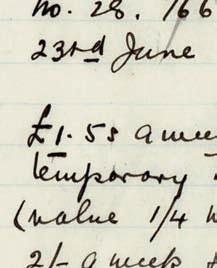 no. 28. 166
23rd June
£1.5s a wee
temporary
(value 1/4
2/- a week